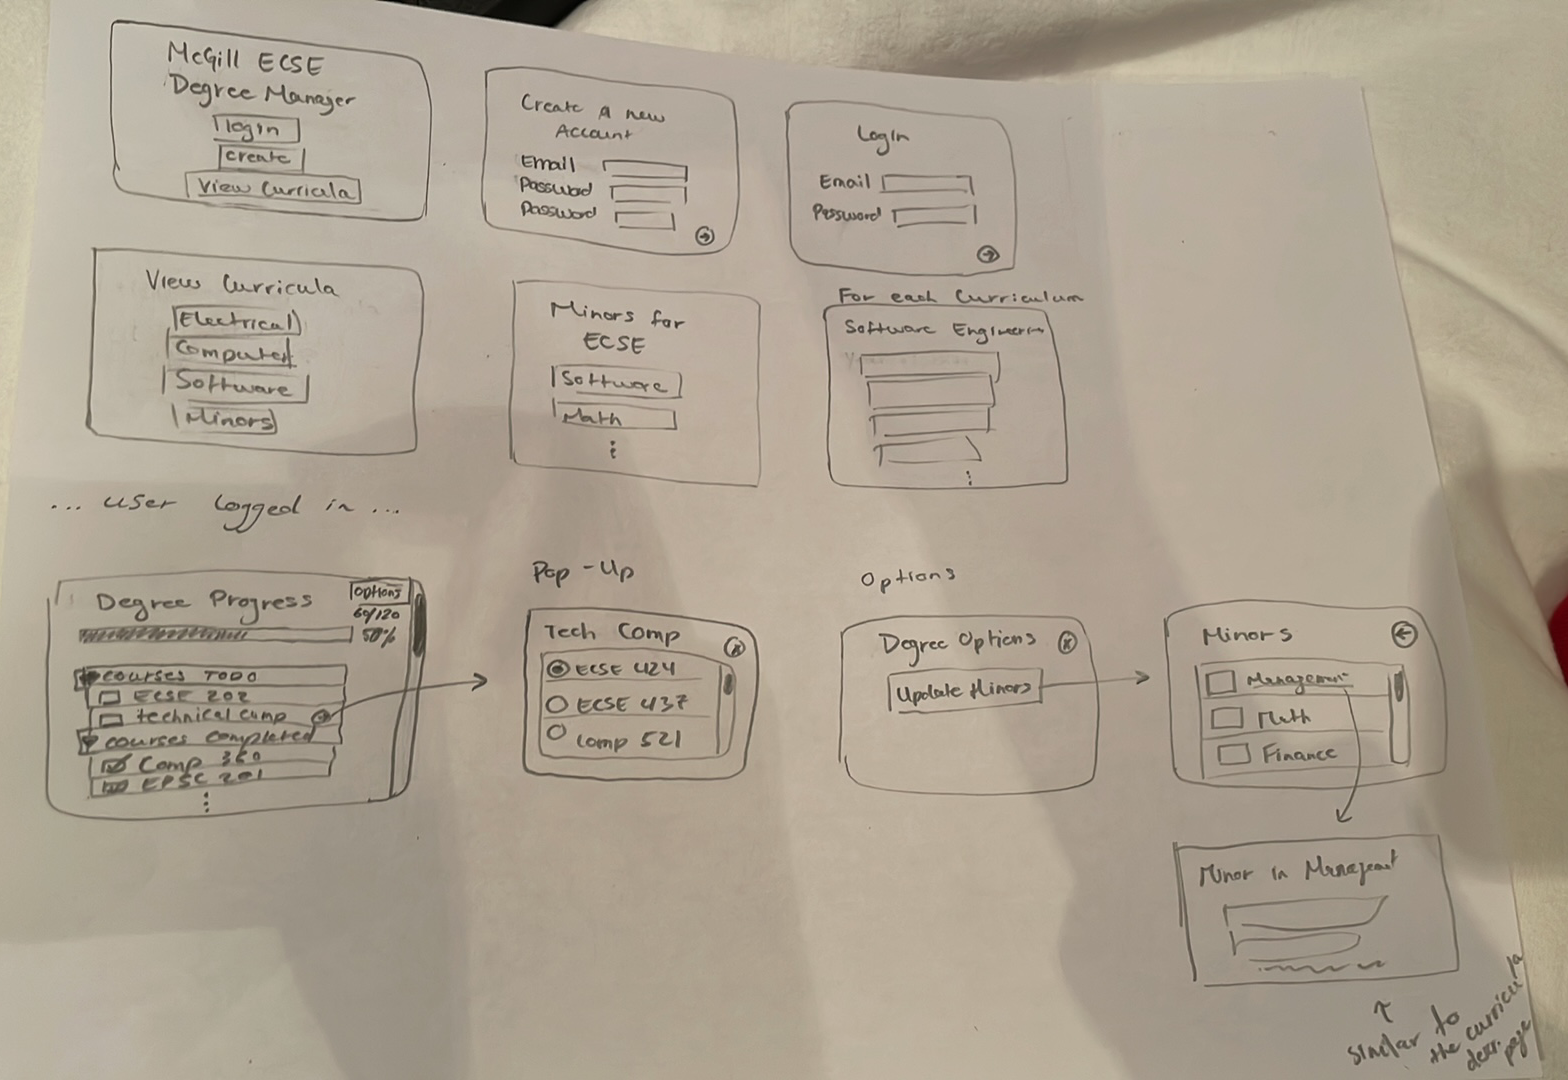 McGill ECSE
Degree Manager
login
create
View Curricula
Create A new
Account
Email
Password
Password
Login
Email
Password
View Curricula
Electrical
Computer
Software
Minors
Minors for
ECSE
Software
Math
For each Curriculum
Software Engineering
... user logged in ...
Degree Progress
Options
60/120
50%
courses TODO
ECSE 202
technical comp
courses completed
Comp 360
EPSC 201
Pop-Up
Tech Comp
ECSE 424
ECSE 437
Comp 521
Options
Degree Options
Update Minors
Minors
Management
Math
Finance
Minor in Management
similar to
the curricula
descr.
page